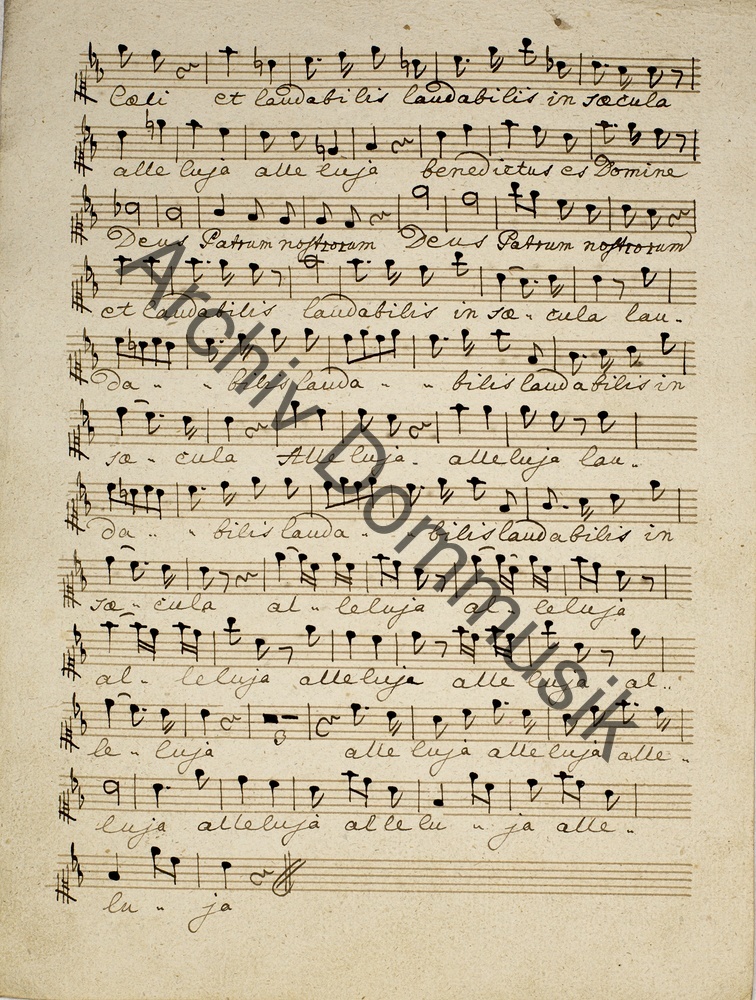 cœli et laudabilis laudabilis in sæcula
alleluja alleluja benedictus es Domine
Deus Patrum nostrorum Deus Patrum nostrorum
et laudabilis laudabilis in sæ - cula lau-
da - - bilis lauda - - bilis laudabilis in
sæ - cula Alleluja. alleluja lau-
da - - bilis lauda - - bilis laudabilis in
sæ - cula al - leluja al - leluja
al - leluja alleluja alleluja al-
le - luja 3 alleluja alleluja alle-
luja alleluja allelu - ja alle-
lu - ja
Archiv Dommusik